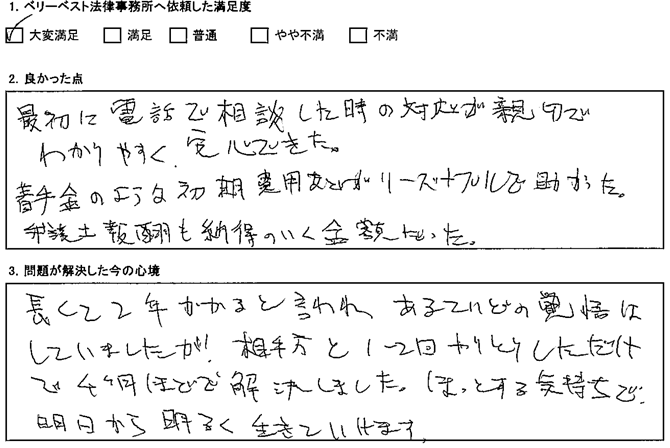 1. ベリーベスト法律事務所へ依頼した満足度
大変満足 満足 普通 やや不満 不満
2. 良かった点
最初に電話で相談した時の対応が親切で
わかりやすく、安心できた。
着手金のような初期費用などがリーズナブルで助かった。
弁護士報酬も納得のいく金額だった。
3. 問題が解決した今の心境
長くて2年かかると言われ、あるていどの覚悟は
していましたが、相手方と1~2回やりとりしただけ
で4ヶ月ほどで解決しました。ほっとする気持ちで、
明日から明るく生きていけます。